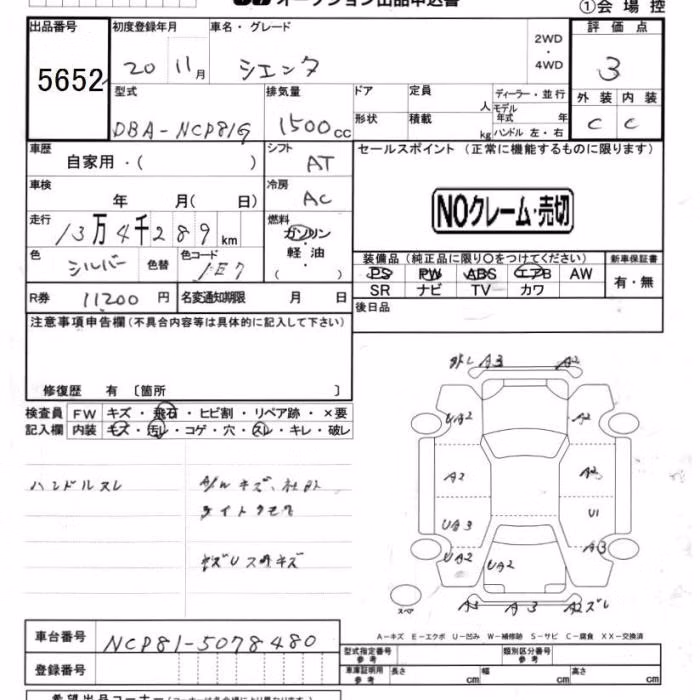 オークション出品申込書
①会場控
出品番号 初度登録年月 車名・グレード 評価点
5652 20 11月 シエンタ 2WD・4WD 3
型式 排気量 ドア 定員 人 ディーラー・並行 外装 内装
DBA-NCP81G 1500cc 形状 積載 kg モデル年式 年 C C
ハンドル 左・右
車歴 自家用・( ) シフト AT セールスポイント (正常に機能するものに限ります)
車検 年 月( 日) 冷房 AC NOクレーム・売切
走行 13万4千289km 燃料 ガソリン・軽油 ( )
色 シルバー 色替 色コード 1E7
装備品(純正品に限り〇をつけてください) 新車保証書
PS PW ABS エアB AW 有・無
SR ナビ TV カワ
R券 11200円 名変通知期限 月 日 後日品
注意事項申告欄(不具合内容等は具体的に記入して下さい)
修復歴 有 〔箇所 〕
検査員 FW キズ・飛石・ヒビ割・リペア跡・×要
記入欄 内装 キズ・汚レ・コゲ・穴・スレ・キレ・破レ
ハンドルスレ
外レ A3 A2
UA2 A2
A2 A2
UA3 U1
UA2 UA2 A3
A3 A3 A2ズレ
スペア
A-キズ E-エクボ U-凹み W-補修跡 S-サビ C-腐食 XX-交換済
車台番号 NCP81-5078480
登録番号
型式指定番号 参考 類別区分番号 参考
車庫証明用 参考 長さ cm 幅 cm 高さ cm
希望出品コーナー